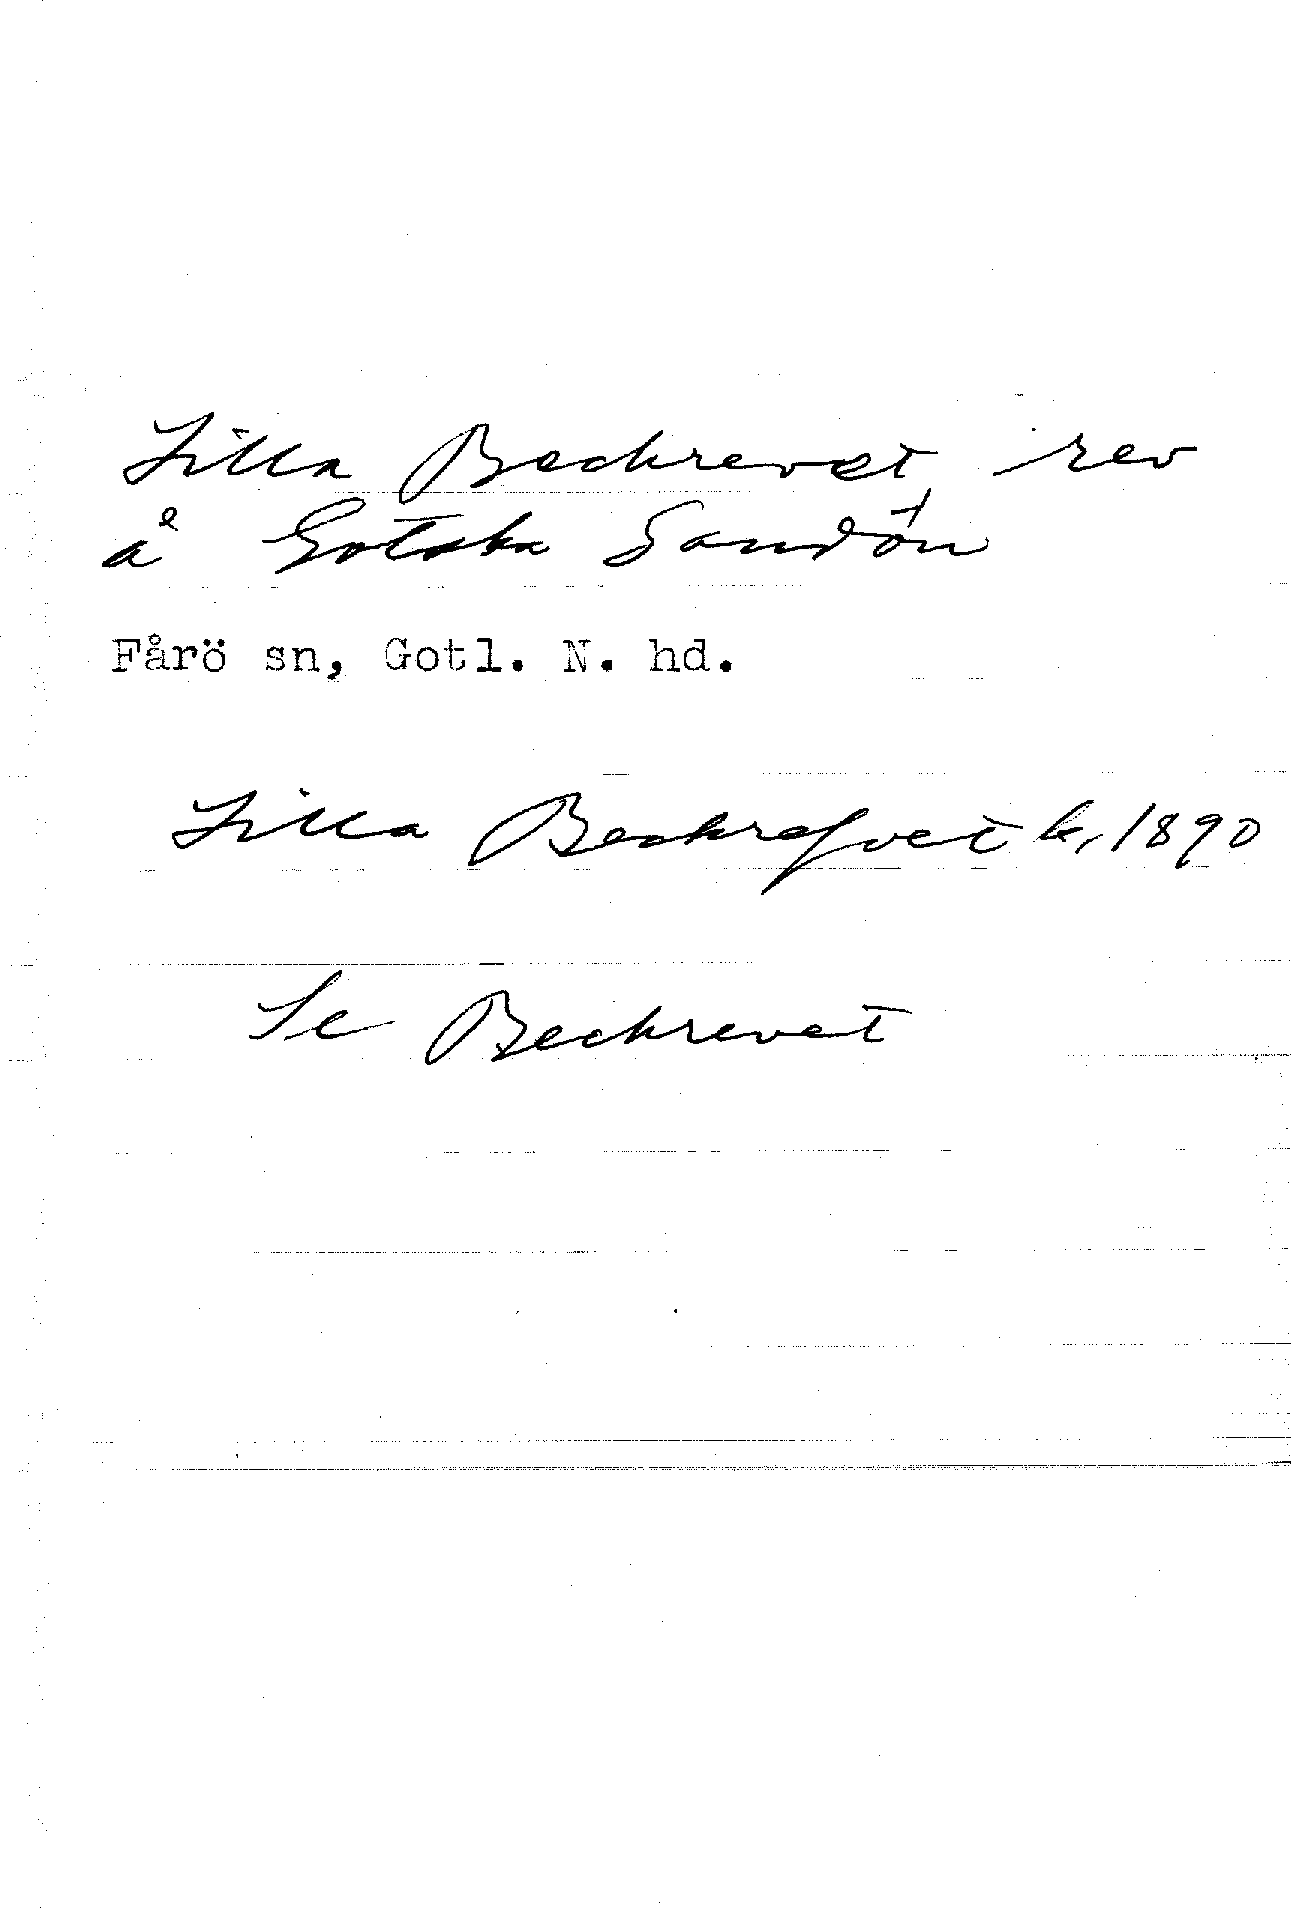 Lilla Beckrevet, rev
å Gotska Sandön
Fårö sn, Gotl. N. hd.
Lilla Beckrefvet k. 1890
Se Beckrevet